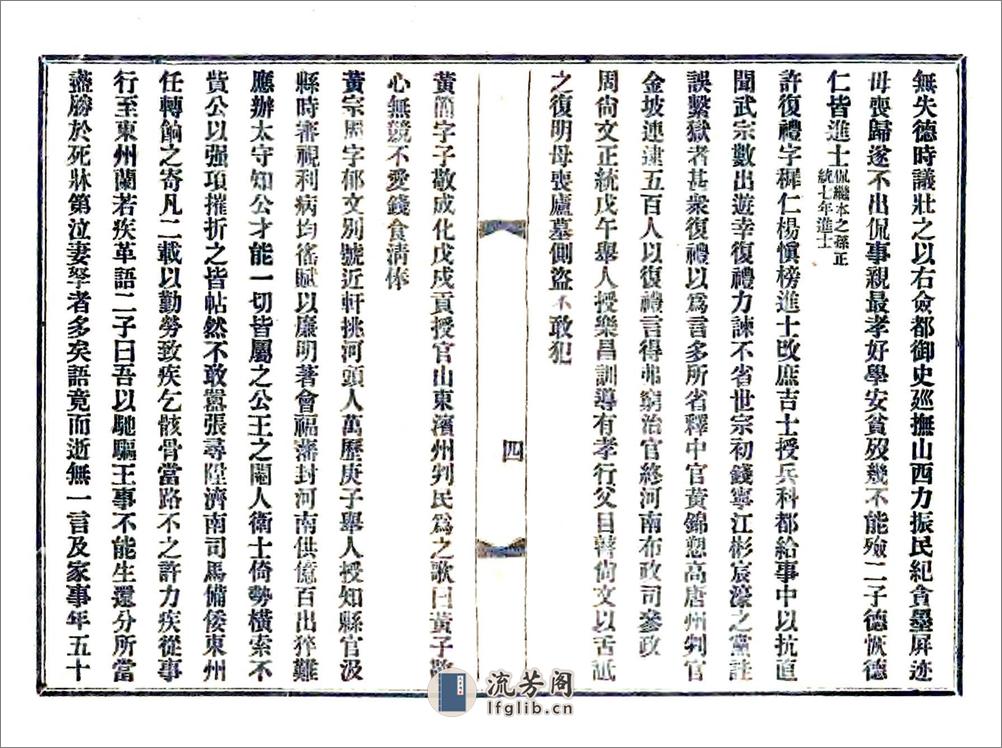 無失德時議壯之以右僉都御史廵撫山西力振民紀貪墨屏迹
母喪歸遂不出侃事親最孝好學安貧歿幾不能殮二子德恢德
仁皆進士侃繼本之孫正
統七年進士
許復禮字穉仁楊愼榜進士改庶吉士授兵科都給事中以抗直
聞武宗數出遊幸復禮力諫不省世宗初錢寧江彬宸濠之黨註
誤繫獄者甚衆復禮以爲言多所省釋中官黃錦愬高唐州判官
金坡連逮五百人以復禮言得弗窮治官終河南布政司參政
周尙文正統戊午舉人授樂昌訓導有孝行父目瞽尙文以舌舐
之復明母喪廬墓側盜不敢犯
四
黃簡字子敬成化戊戌貢授官山東濱州判民爲之歌曰黃子敬
心無競不愛錢食淸俸
黃宗周字郁文別號近軒挑河頭人萬歷庚子舉人授知縣官汲
縣時審視利病均徭賦以廉明著會福藩封河南供億百出猝難
應辦太守知公才能一切皆屬之公王之閹人衛士倚勢橫索不
貲公以强項摧折之皆帖然不敢囂張尋陞濟南司馬備倭東州
任轉餉之寄凡二載以勤勞致疾乞骸骨當路不之許力疾從事
行至東州蘭若疾革語二子曰吾以馳驅王事不能生還分所當
盡勝於死牀第泣妻孥者多矣語竟而逝無一言及家事年五十
流芳阁
lfglib.cn